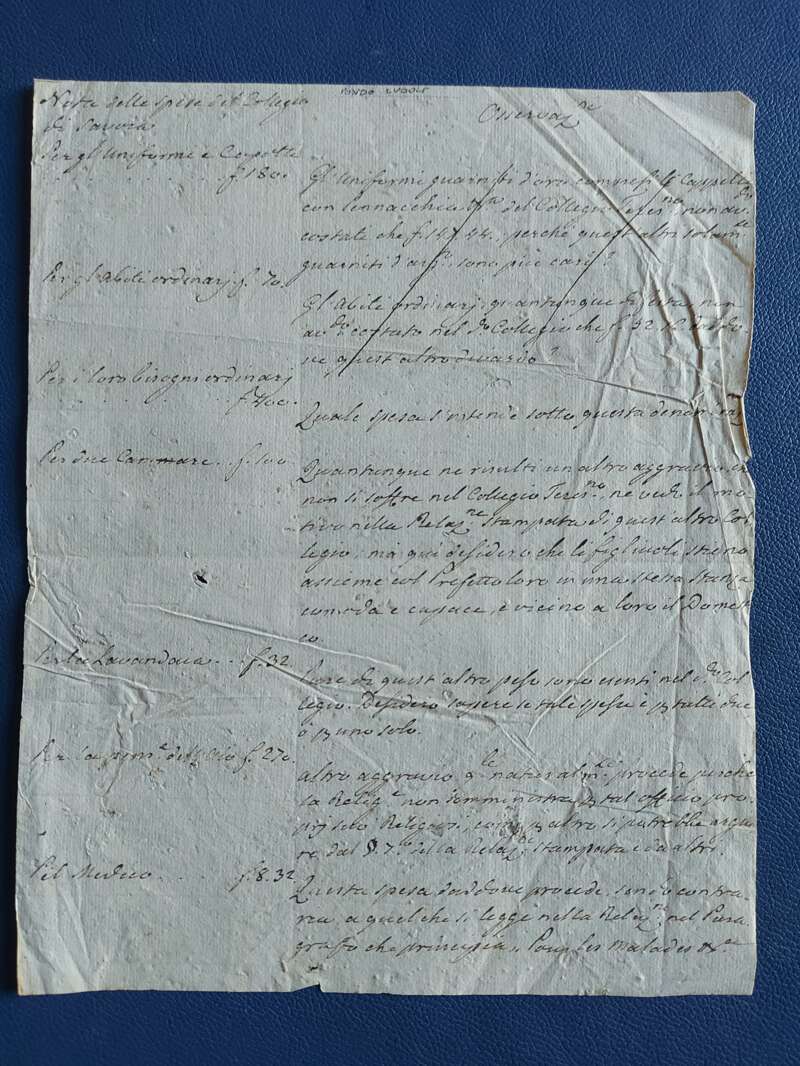 FONDO LUDOLF
Nota delle spese del Collegio
di Savoia
Osservaz.e
Per gl'Uniformi e Capotte
f. 180.
Gl'Uniformi guarniti d'oro compresi li Cappelli
con Pennacchia del Collegio Teres.no non av.do
costate che f. 144. 44. perché quest'altri solam.te
guarniti d'arg.o sono più cari?
Per gl'Abiti ordinarj f. 70.
Gl'Abiti ordinarj quantunque di seta non
av.do costato nel d.o Collegio che f. 32. 12. daddo-
ve quest'altro divario?
Per i loro bisogni ordinarj
f. 400.
Quale spesa s'intende sotto questa denominaz
Per due Cammare . f. 100
Quantunque ne risulti un altro aggravio, ch
non si soffre nel Collegio Teres.no, ne vedo il mo-
tivo nella Relaz.ne stampata di quest'altro Col-
legio; mà qui desidero che li figliuoli stieno
assieme col Prefetto loro in una stessa stanza
comoda e capace, e vicino a loro il Domesti-
co.
Per la Lavandaia . . f. 32.
Pure di quest'altro peso sono esenti nel d.o Col-
legio. Desidero sapere se tale spesa è p tutti due
o p uno solo.
f. 270.
altro aggravio q.le naturalm.te procede perche
la Relig.e non somministra p tal officio pro-
prj suoi Religiosi, come p altro si potrebbe argui-
re dal §. 7.o della Relaz.ne stampata e da altri.
Pel Medico . . . f. 8. 32
Questa spesa daddove procede, sendo contra-
ria a quel che si legge nella Relaz.ne nel Para-
grafo che principia „ Pour les malades &.a